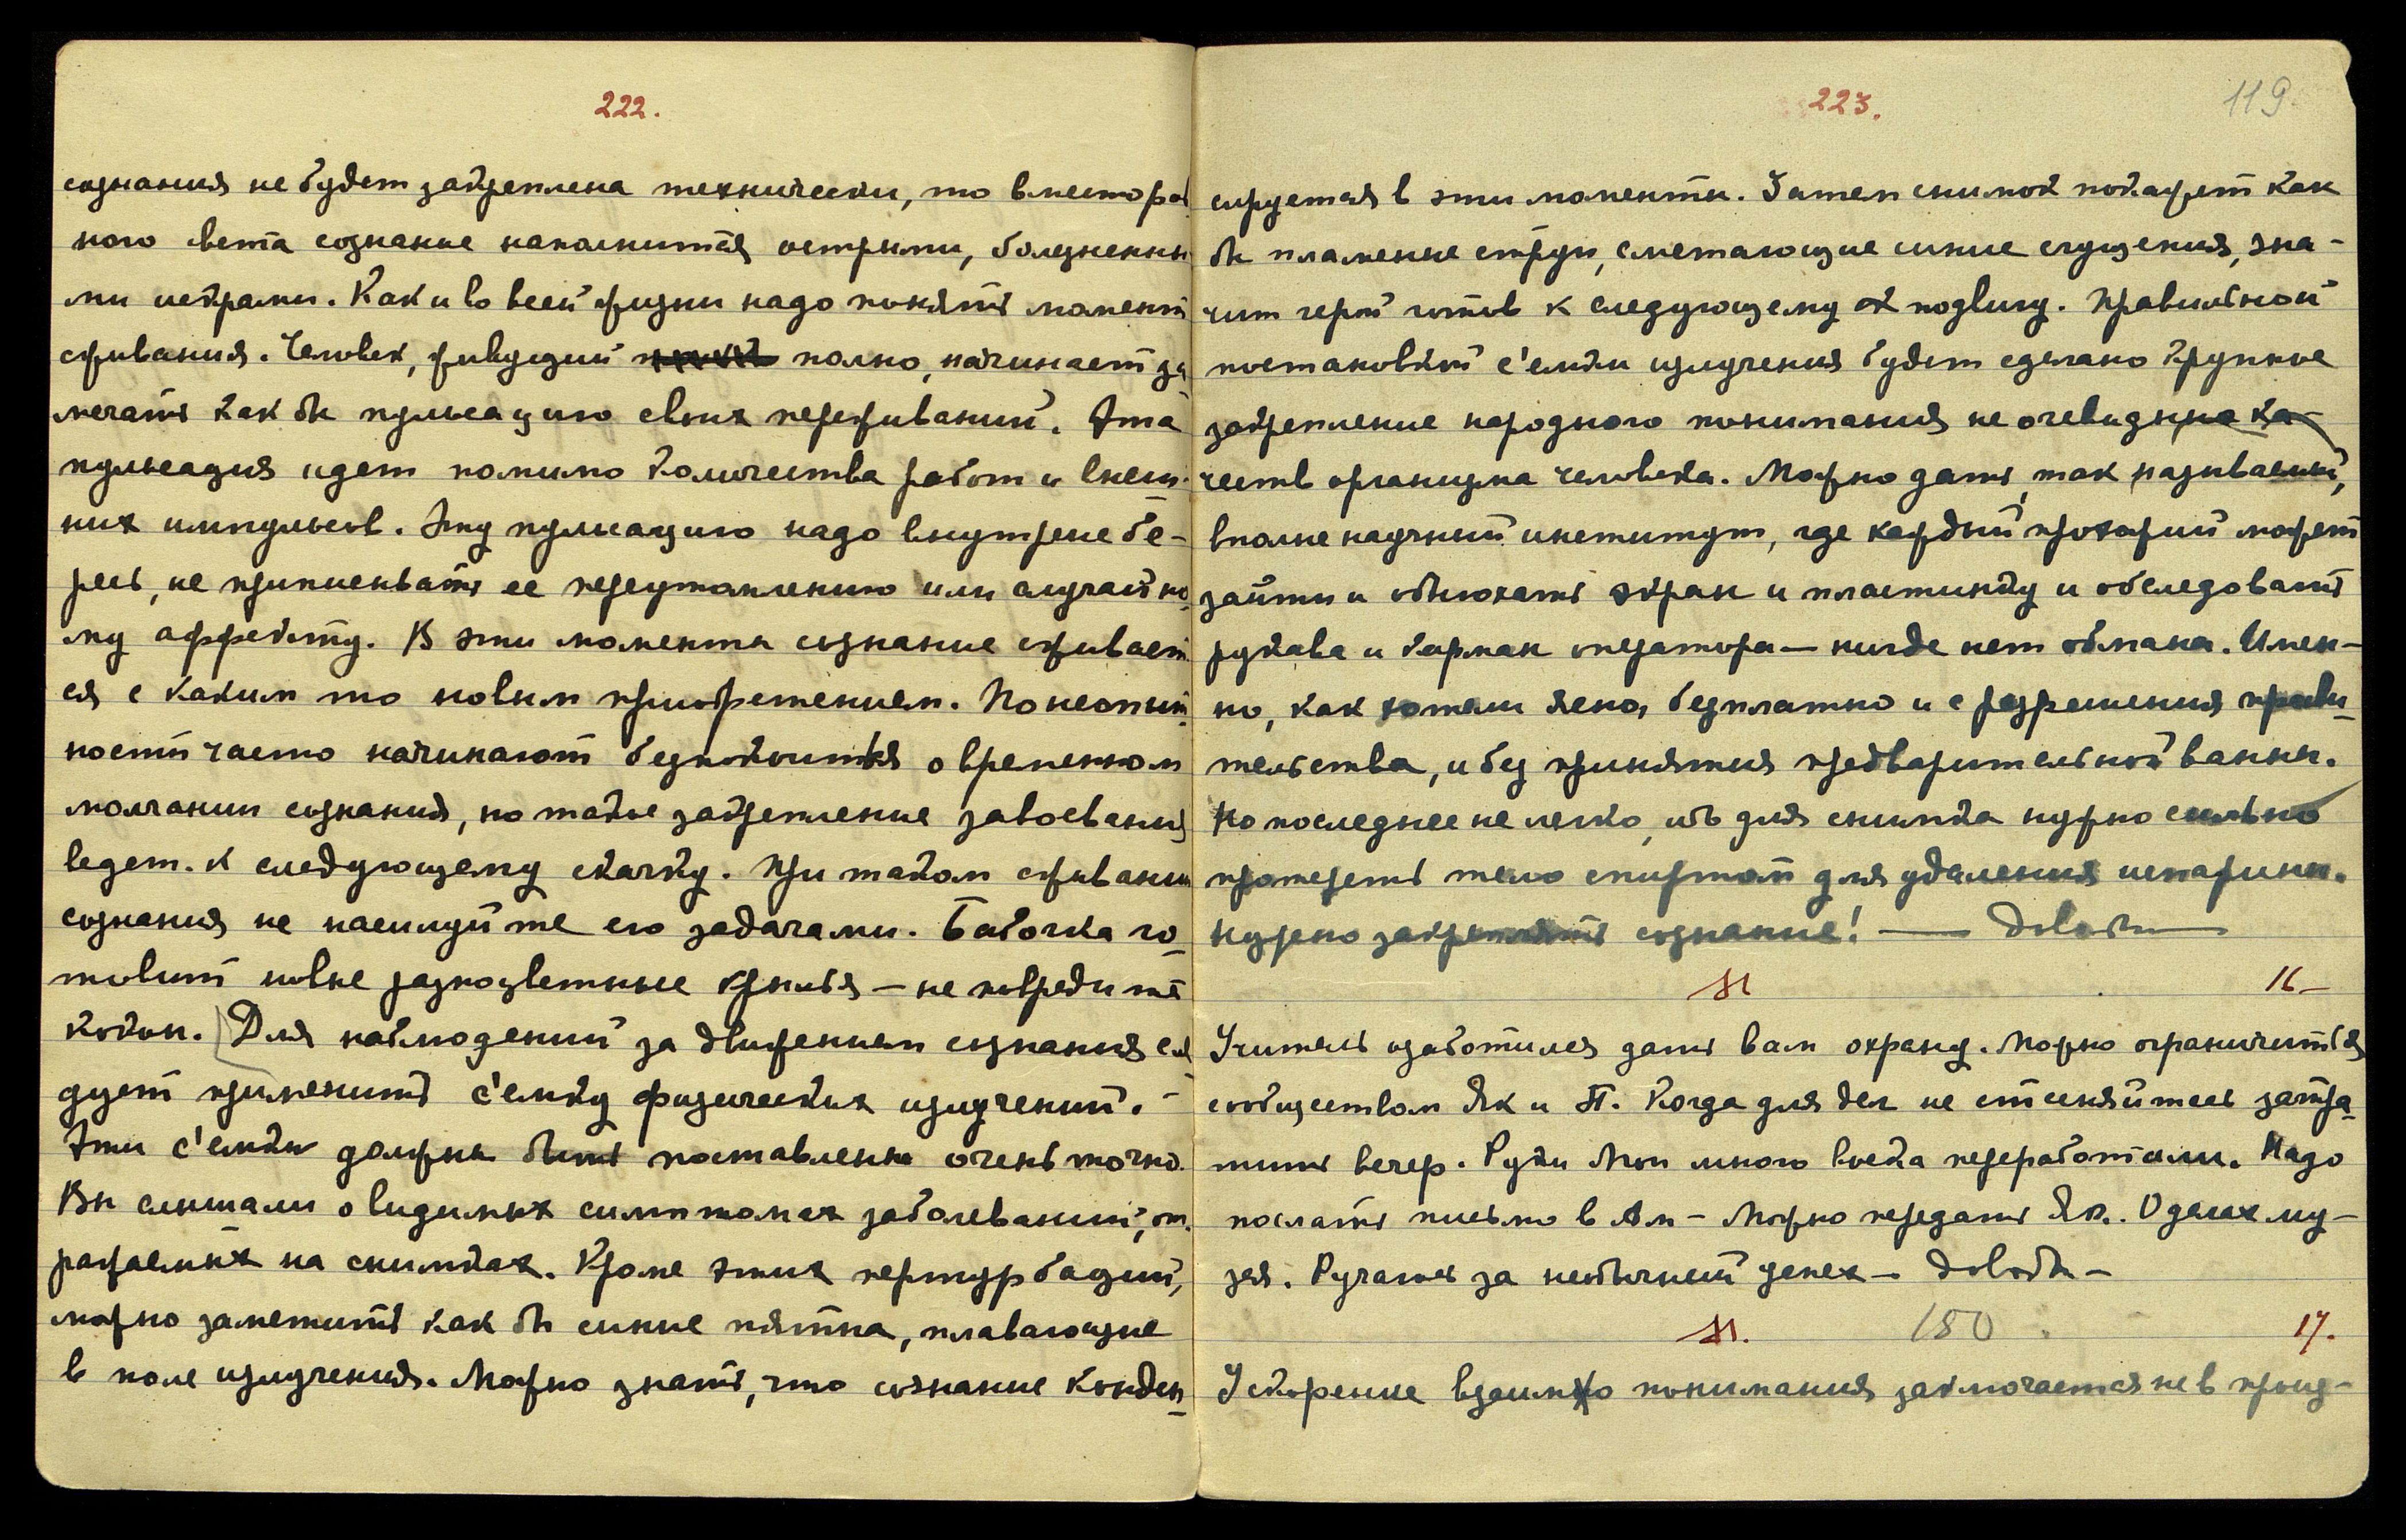 222.
сознания не будет закреплена технически, то вместо ров
ного света сознание наполнится острыми, болезненны
ми искрами. Как и во всей жизни надо понять момент
сживания. Человек, живущий полно, начинает за
мечать как бы пульсацию своих переживаний. Эта
пульсация идет помимо количества работ и внеш-
них импульсов. Эту пульсацию надо внутрене бе-
речь, не приписывать ее переутомлению или случайно
му аффекту. В эти моменты сознание сживает
ся с каким то новым приобретением. По неопыт
ности часто начинают безпокоиться о временном
молчании сознания, но такое закрепление завоевания
ведет к следующему скачку. При таком сживании
сознания не насилуйте его задачами. Бабочка го
товит новые разноцветные крылья – не повредите
кокон. Для наблюдений за движением сознания сле
дует применить с'емку физических излучений. –
Эти с'емки должны быть поставлены очень точно.
Вы слышали о видимых симптомах заболеваний, от
ражаемых на снимках. Кроме этих пертурбаций,
можно заметить как бы синие пятна, плавающие
в поле излучения. Можно знать, что сознание конден
223.
119.
сируется в эти моменты. Затем снимок покажет как
бы пламенные струи, сметающие синие сгущения, зна-
чит герой готов к следующему подвигу. Правильной
постановкой с'емки излучения будет сделано крупное
закрепление народного понимания не очевидных ка-
честв организма человека. Можно дать, так называемый,
вполне научный институт, где каждый прохожий может
зайти и обнюхать экран и пластинку и обследовать
рукава и карман оператора – нигде нет обмана. Имен-
но, как хотели ясно, безплатно и с разрешения прави
тельства, и без принятия предварительной ванны.
Но последнее не легко, ибо для снимка нужно сильно
протереть тело спиртом для удаления испарины.
Нужно закреплять сознание! — Довольно
М 16 –
Учитель озаботился дать вам охрану. Можно ограничиться
сообществом Як и П. Когда для дел не стесняйтесь затра
тить вечер. Руки Мои много воска переработали. Надо
послать письмо в Ам – Можно передать Як. О делах му-
зея. Ручаюсь за необычный успех – Довольно –
М. 180 17.
Ускорение взаимно понимания заключается не в произ-